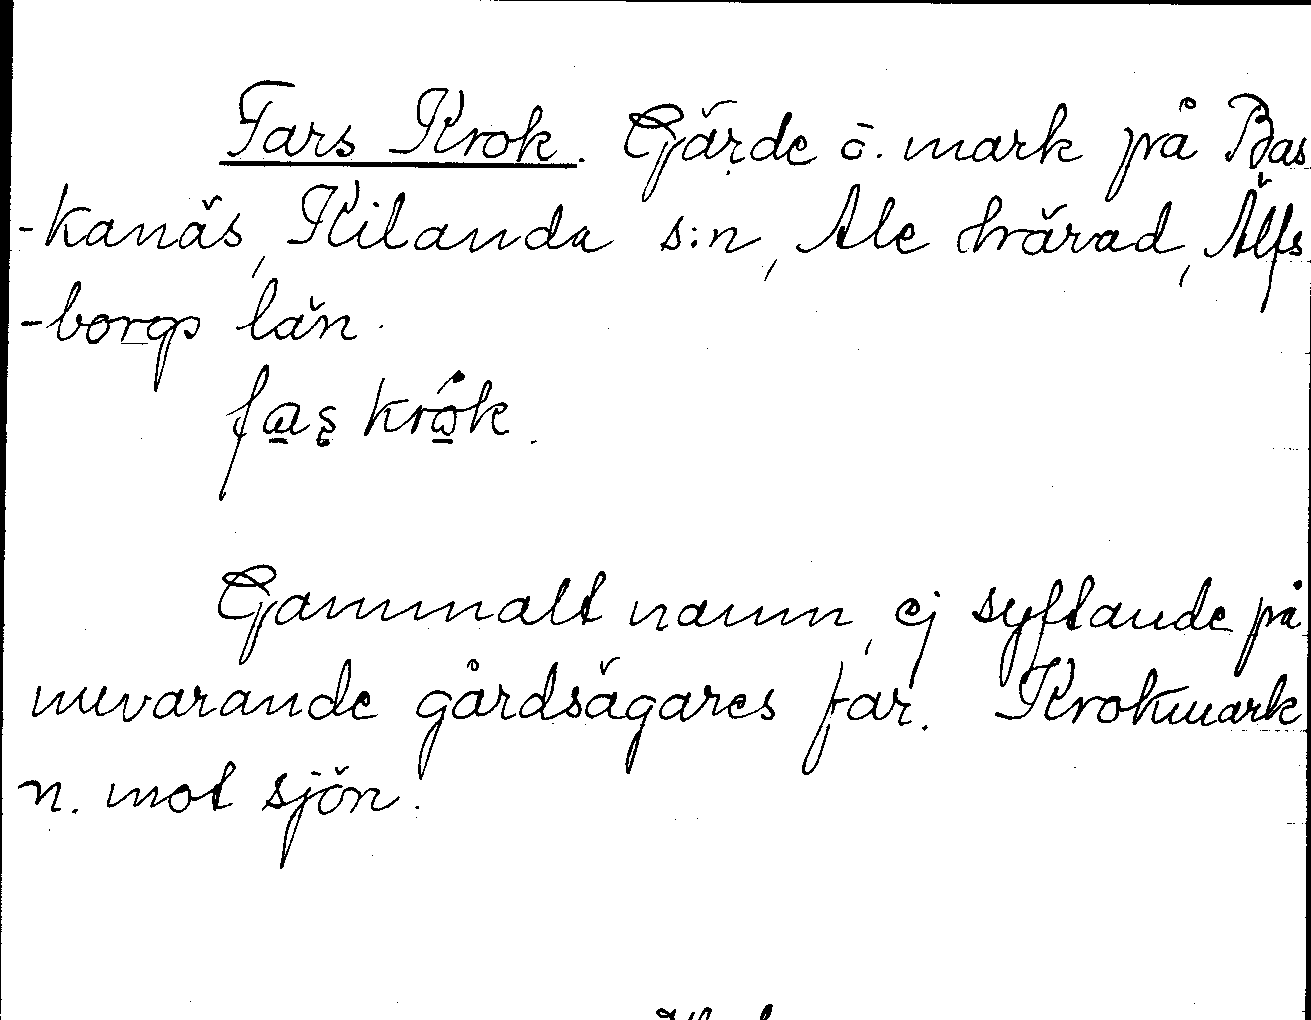 Fars Krok. Gärde o. mark på Bas
-kanäs, Kilanda s:n, Ale härad, Älfs
-borgs län.
krok.
Gammalt namn, ej syftande på
nuvarande gårdsägares far. Krokmark
n. mot sjön.